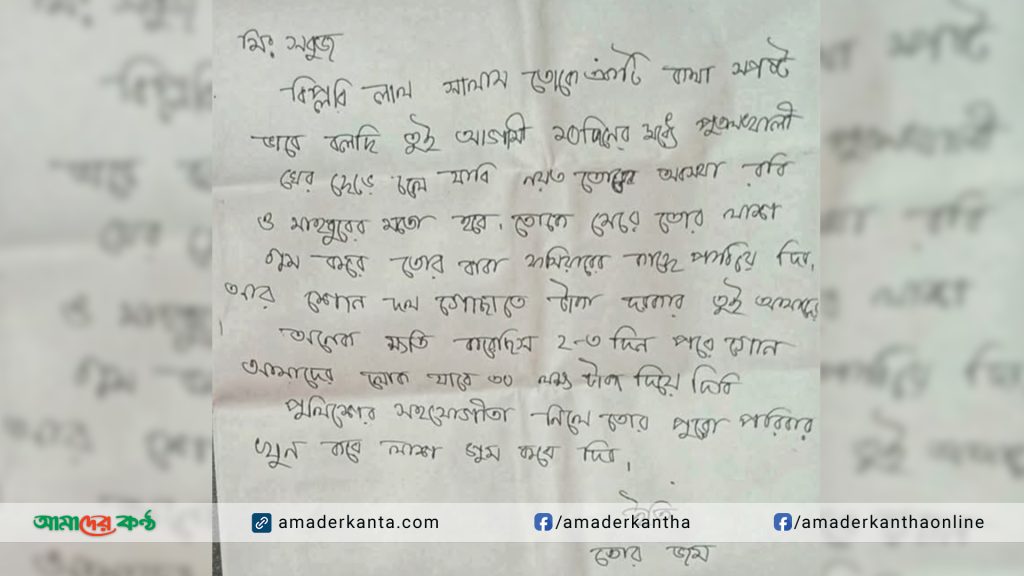 মিঃ সবুজ
বিপ্লবি লাল সালাম তোকে একটি কথা স্পষ্ট
ভাবে বলছি তুই আগামী দিনের মধ্যে
ঘের ছেড়ে চলে যাবি নয়ত তোদের অবস্থা রবি
ও মাহবুরের মতো হবে। তোকে মেরে তোর লাশ
গুম করে তোর বাবা কাছে পাঠিয়ে দিব,
আর শোন দল গোছাতে টাকা দরকার তুই আমাদের
অনেক ক্ষতি করেছিস ২-৩ দিন পরে গোন
আমাদের লোক যাবে ৩০ লক্ষ টাকা দিয়ে দিবি
পুলিশের সহযোগীতা নিলে তোর পুরো পরিবার
খুন করে লাশ গুম করে দিব,
ইতি
তোর জম
আমাদের কণ্ঠ
amaderkanta.com
/amaderkantha
/amaderkanthaonline